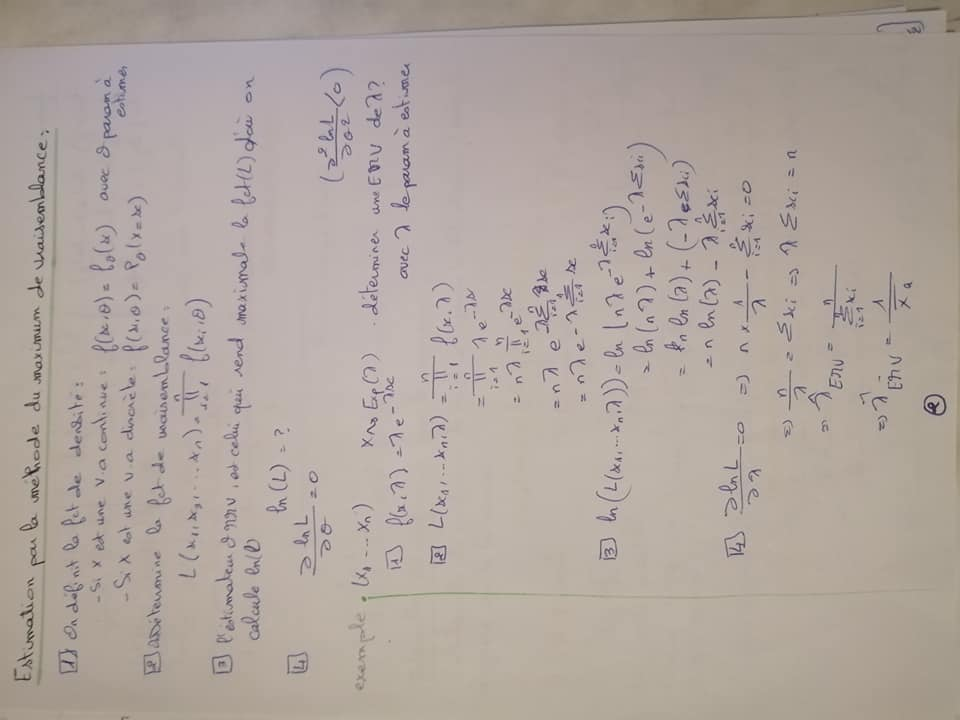 Estimation par la méthode du maximum de vraisemblance :
1) On définit la fct de densité :
- Si X est une v.a continue : f(x,θ) = f_θ(x) avec θ param à estimer
- Si X est une v.a discrète : f(x,θ) = P_θ(X=x)
2) détermine la fct de vraisemblance :
L(x₁,x₂,...x_n) = ∏_{i=1}^{n} f(x_i,θ)
3) l'estimateur θ MMV, est celui qui rend maximale la fct(L) d'où on
calcule ln(L)
ln(L) = ?
4) ∂ln L/∂θ = 0 (∂² ln L/∂θ² < 0)
exemple : (X₁ ... X_n) X ~> Exp(λ) . déterminer une EMV de λ ?
1) f(x,λ) = λe^{-λx} avec λ le param à estimer
2) L(x₁,...x_n,λ) = ∏_{i=1}^{n} f(x,λ)
= ∏_{i=1}^{n} λe^{-λx}
= nλ ∏_{i=1}^{n} e^{-λx}
= nλ e^{-λ Σ_{i=1}^{n} x}
= nλ e^{-λ Σ_{i=1}^{n} x}
3) ln(L(x₁,...x_n,λ)) = ln(nλ e^{-λ Σ_{i=1}^{n} x_i})
= ln(nλ) + ln(e^{-λ Σx_i})
= n ln(λ) + (-λ Σx_i)
= n ln(λ) - λ Σ_{i=1}^{n} x_i
4) ∂ln L/∂λ = 0 => n × 1/λ - Σ_{i=1}^{n} x_i = 0
=> n/λ = Σx_i => λ Σx_i = n
=> λ̂ EMV = n/Σ_{i=1}^{n} x_i
=> λ̂ EMV = 1/X̄